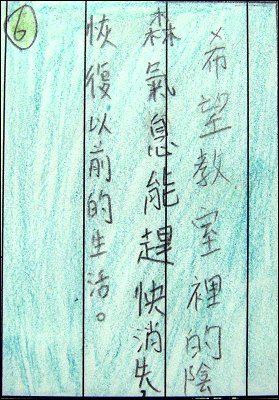 希望教室裡的陰
森氣息能趕快消失,
恢復以前的生活。
6